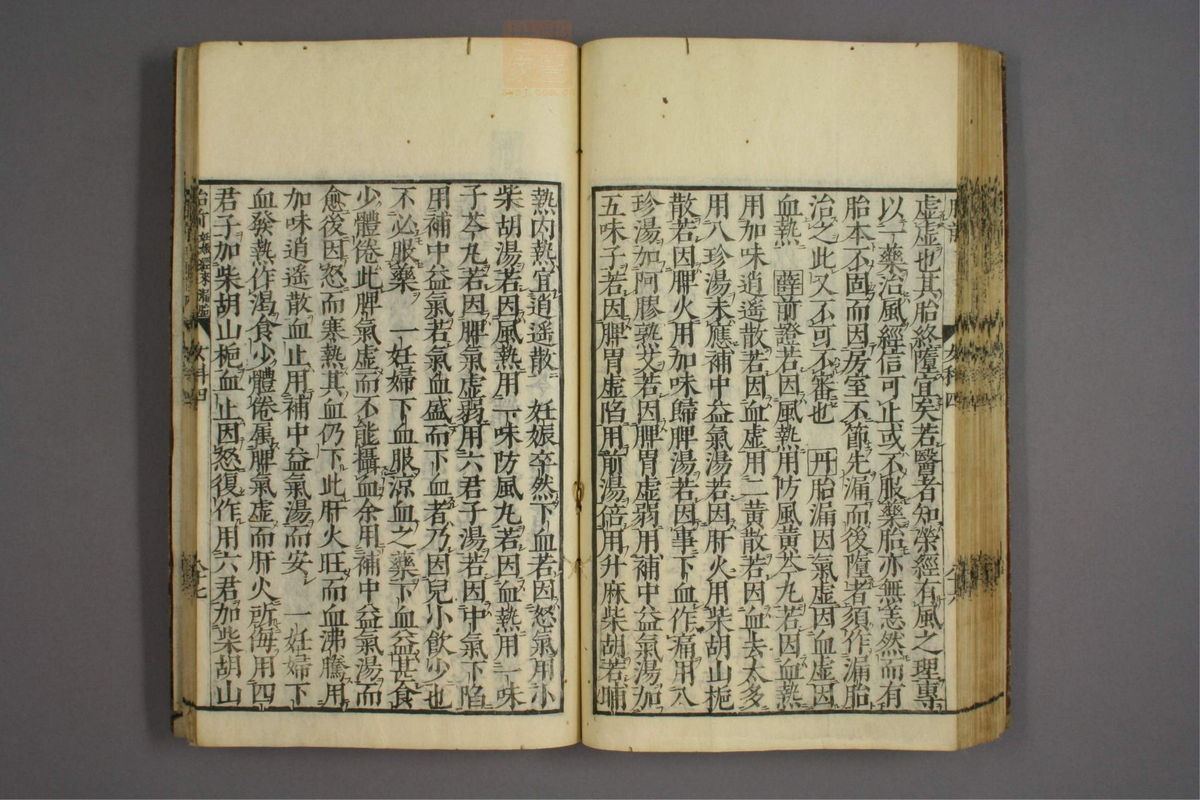 虛虛也其胎終墮宜矣若醫者知榮經有風之理專
以一藥治風經信可止或不服藥胎亦無恙然而有
胎本不固而因房室不節先漏而後墮者須作漏胎
治之此又不可不審也 丹胎漏因氣虛因血虛因
血熱 薛前證若因風熱用防風黃芩丸若因血熱
用加味逍遙散若因血虛用二黃散若因血去太多
用八珍湯未應補中益氣湯若因肝火用柴胡山梔
散若因脾火用加味歸脾湯若因事下血作痛用八
珍湯加阿膠熟艾若因脾胃虛弱用補中益氣湯加
五味子若因脾胃虛陷用前湯倍用升麻柴胡若晡
熱內熱宜逍遙散 妊娠卒然下血若因怒氣用小
柴胡湯若因風熱用一味防風丸若因血熱用一味
子芩丸若因脾氣虛弱用六君子湯若因中氣下陷
用補中益氣若氣血盛而下血者乃因兒小飲少也
不必服藥 一妊婦下血服涼血之藥下血益甚食
少體倦此脾氣虛而不能攝血余用補中益氣湯而
愈後因怒而寒熱其血仍下此肝火旺而血沸騰用
加味逍遙散血止用補中益氣湯而安 一妊婦下
血發熱作渴食少體倦屬脾氣虛而肝火所侮用四
君子加柴胡山梔血止因怒復作用六君加柴胡山
女科四